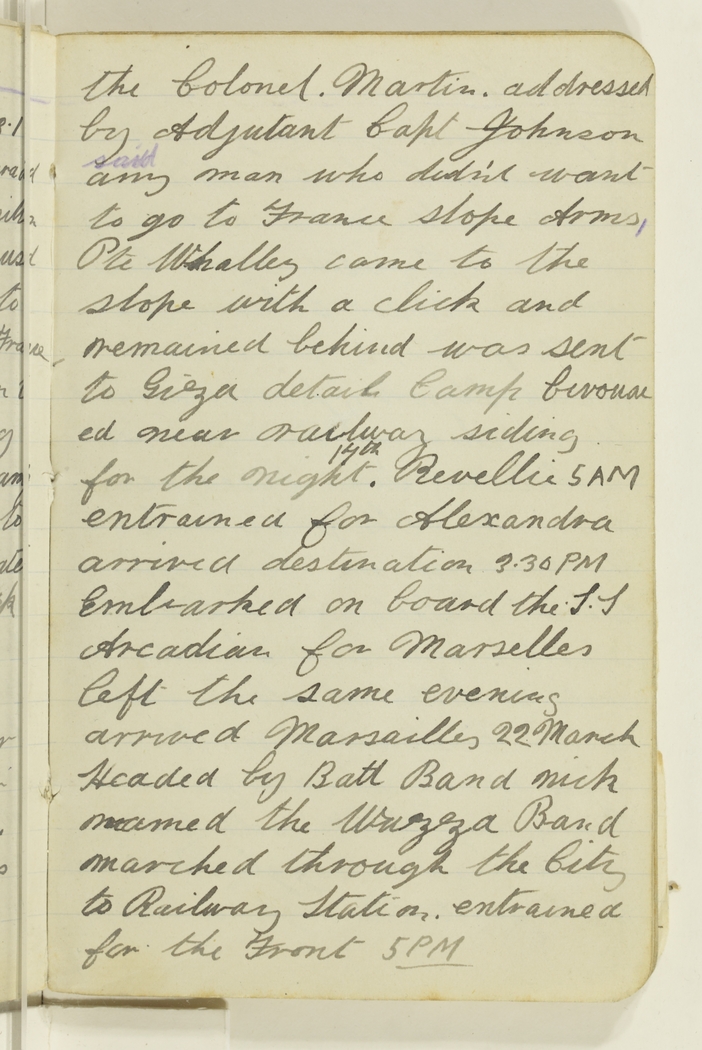 the Colonel. Martin. addressed
by Adjutant Capt Johnson
said
any man who didn't want
to go to France slope Arms,
Pte Whalley came to the
slope with a click and
remained behind was sent
to Gieza details Camp bivouac
ed near railway siding
14th
for the night. Revellie 5AM
entrained for Alexandra
arrived destination 3.30PM
Embarked on board the S.S
Arcadian for Marselles
left the same evening
arrived Marsailles 22 March
Headed by Batt Band nick
named the Wuzza Band
marched through the City
to Railway Station. entrained
for the Front 5PM